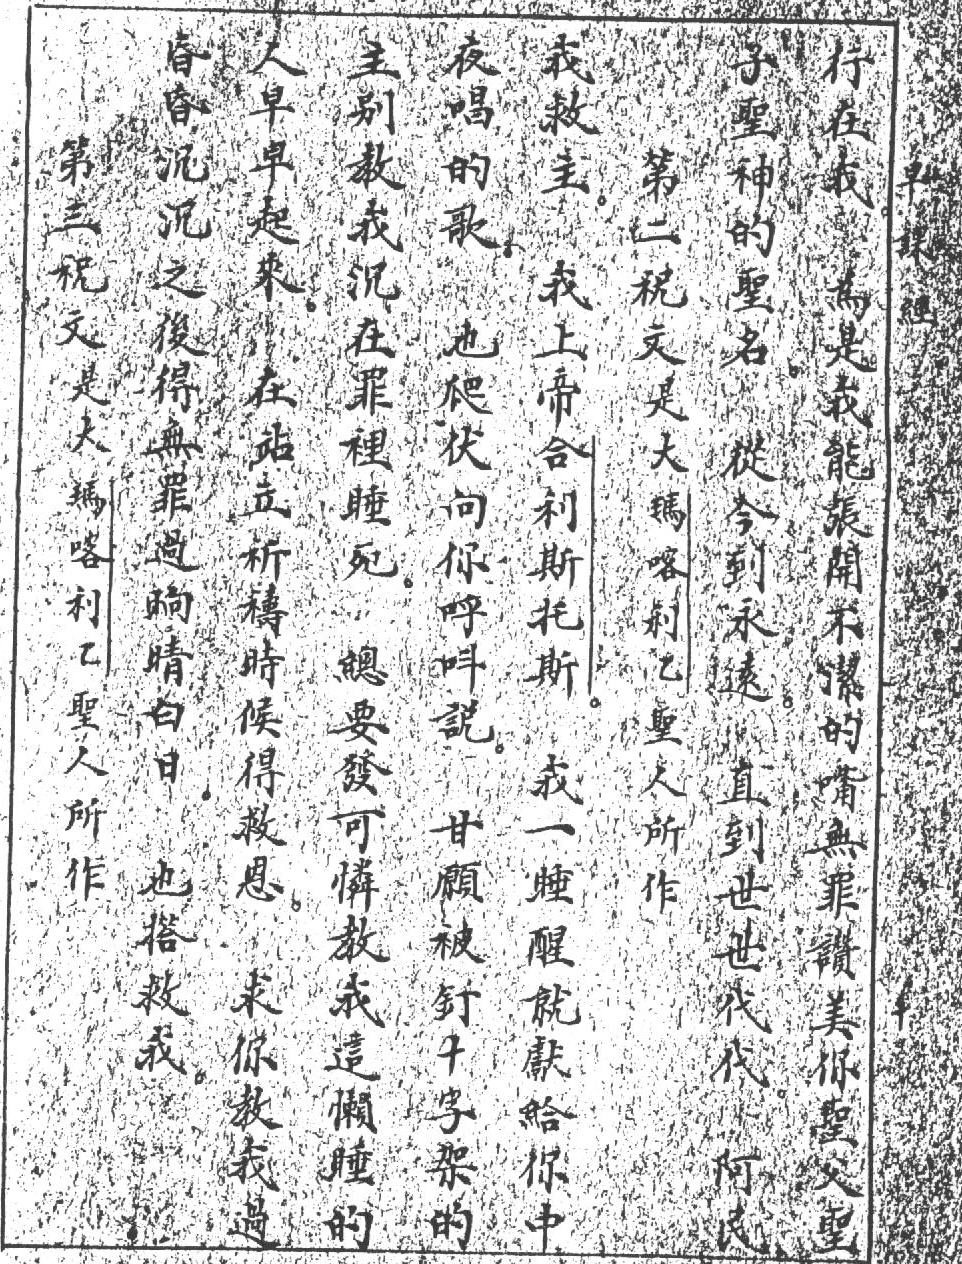 早課經
行在我。為是我能張開不潔的嘴無罪讚美你聖父聖
子聖神的聖名。從今到永遠。直到世世代代。阿民
第二祝文是大瑪喀利乙聖人所作
我救主。我上帝合利斯托斯。我一睡醒就獻給你中
夜唱的歌。也爬伏向你呼呌説。甘願被釘十字架的
主別教我沉在罪裡睡死。總要發可憐教我這懶睡的
人早早起來。在站立祈禱時候得救恩。求你教我過
昏昏沉沉之後得無罪過晌晴白日。也搭救我。
第三祝文是大瑪喀利乙聖人所作